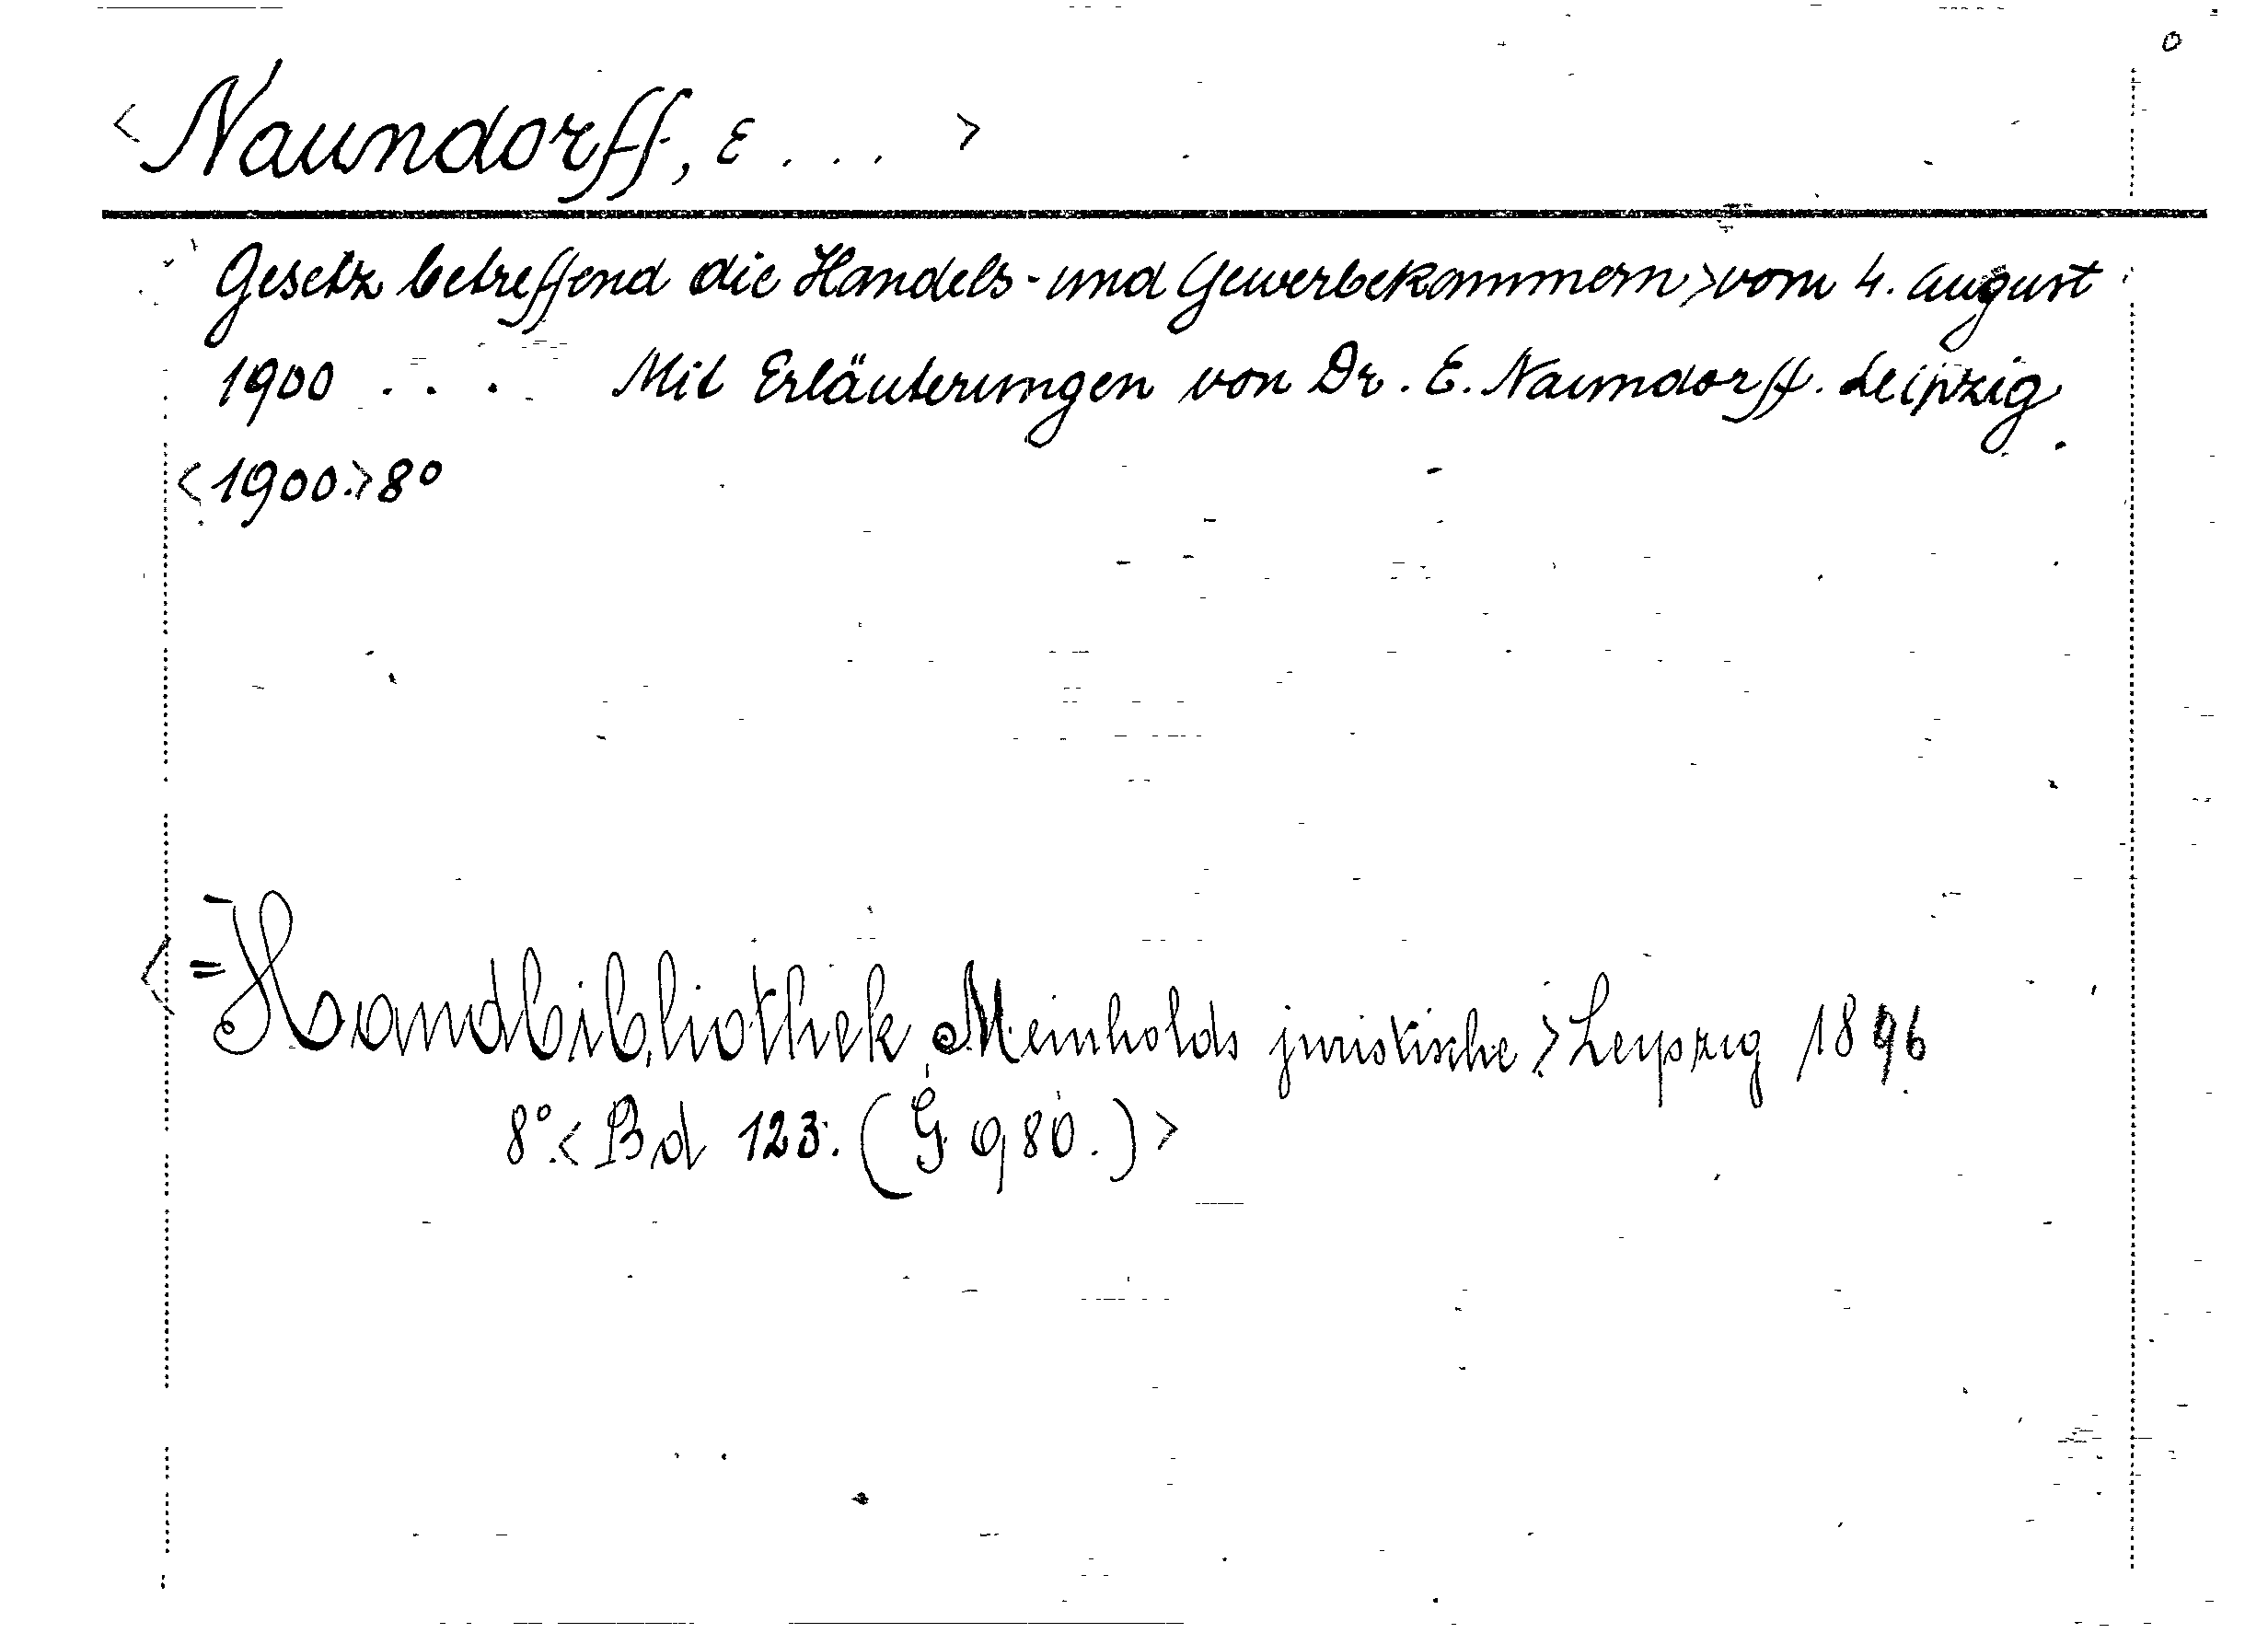 <Naundorff, E . . . >
Gesetz betreffend die Handels- und Gewerbekammern> vom 4. August
1900 . . . . Mit Erläuterungen von Dr. E. Naundorff. Leipzig
<1900.> 8°
<= Handbibliothek, Meinholds juristische> Leipzig 1896
8°. <Bd 123. (G 980.)>